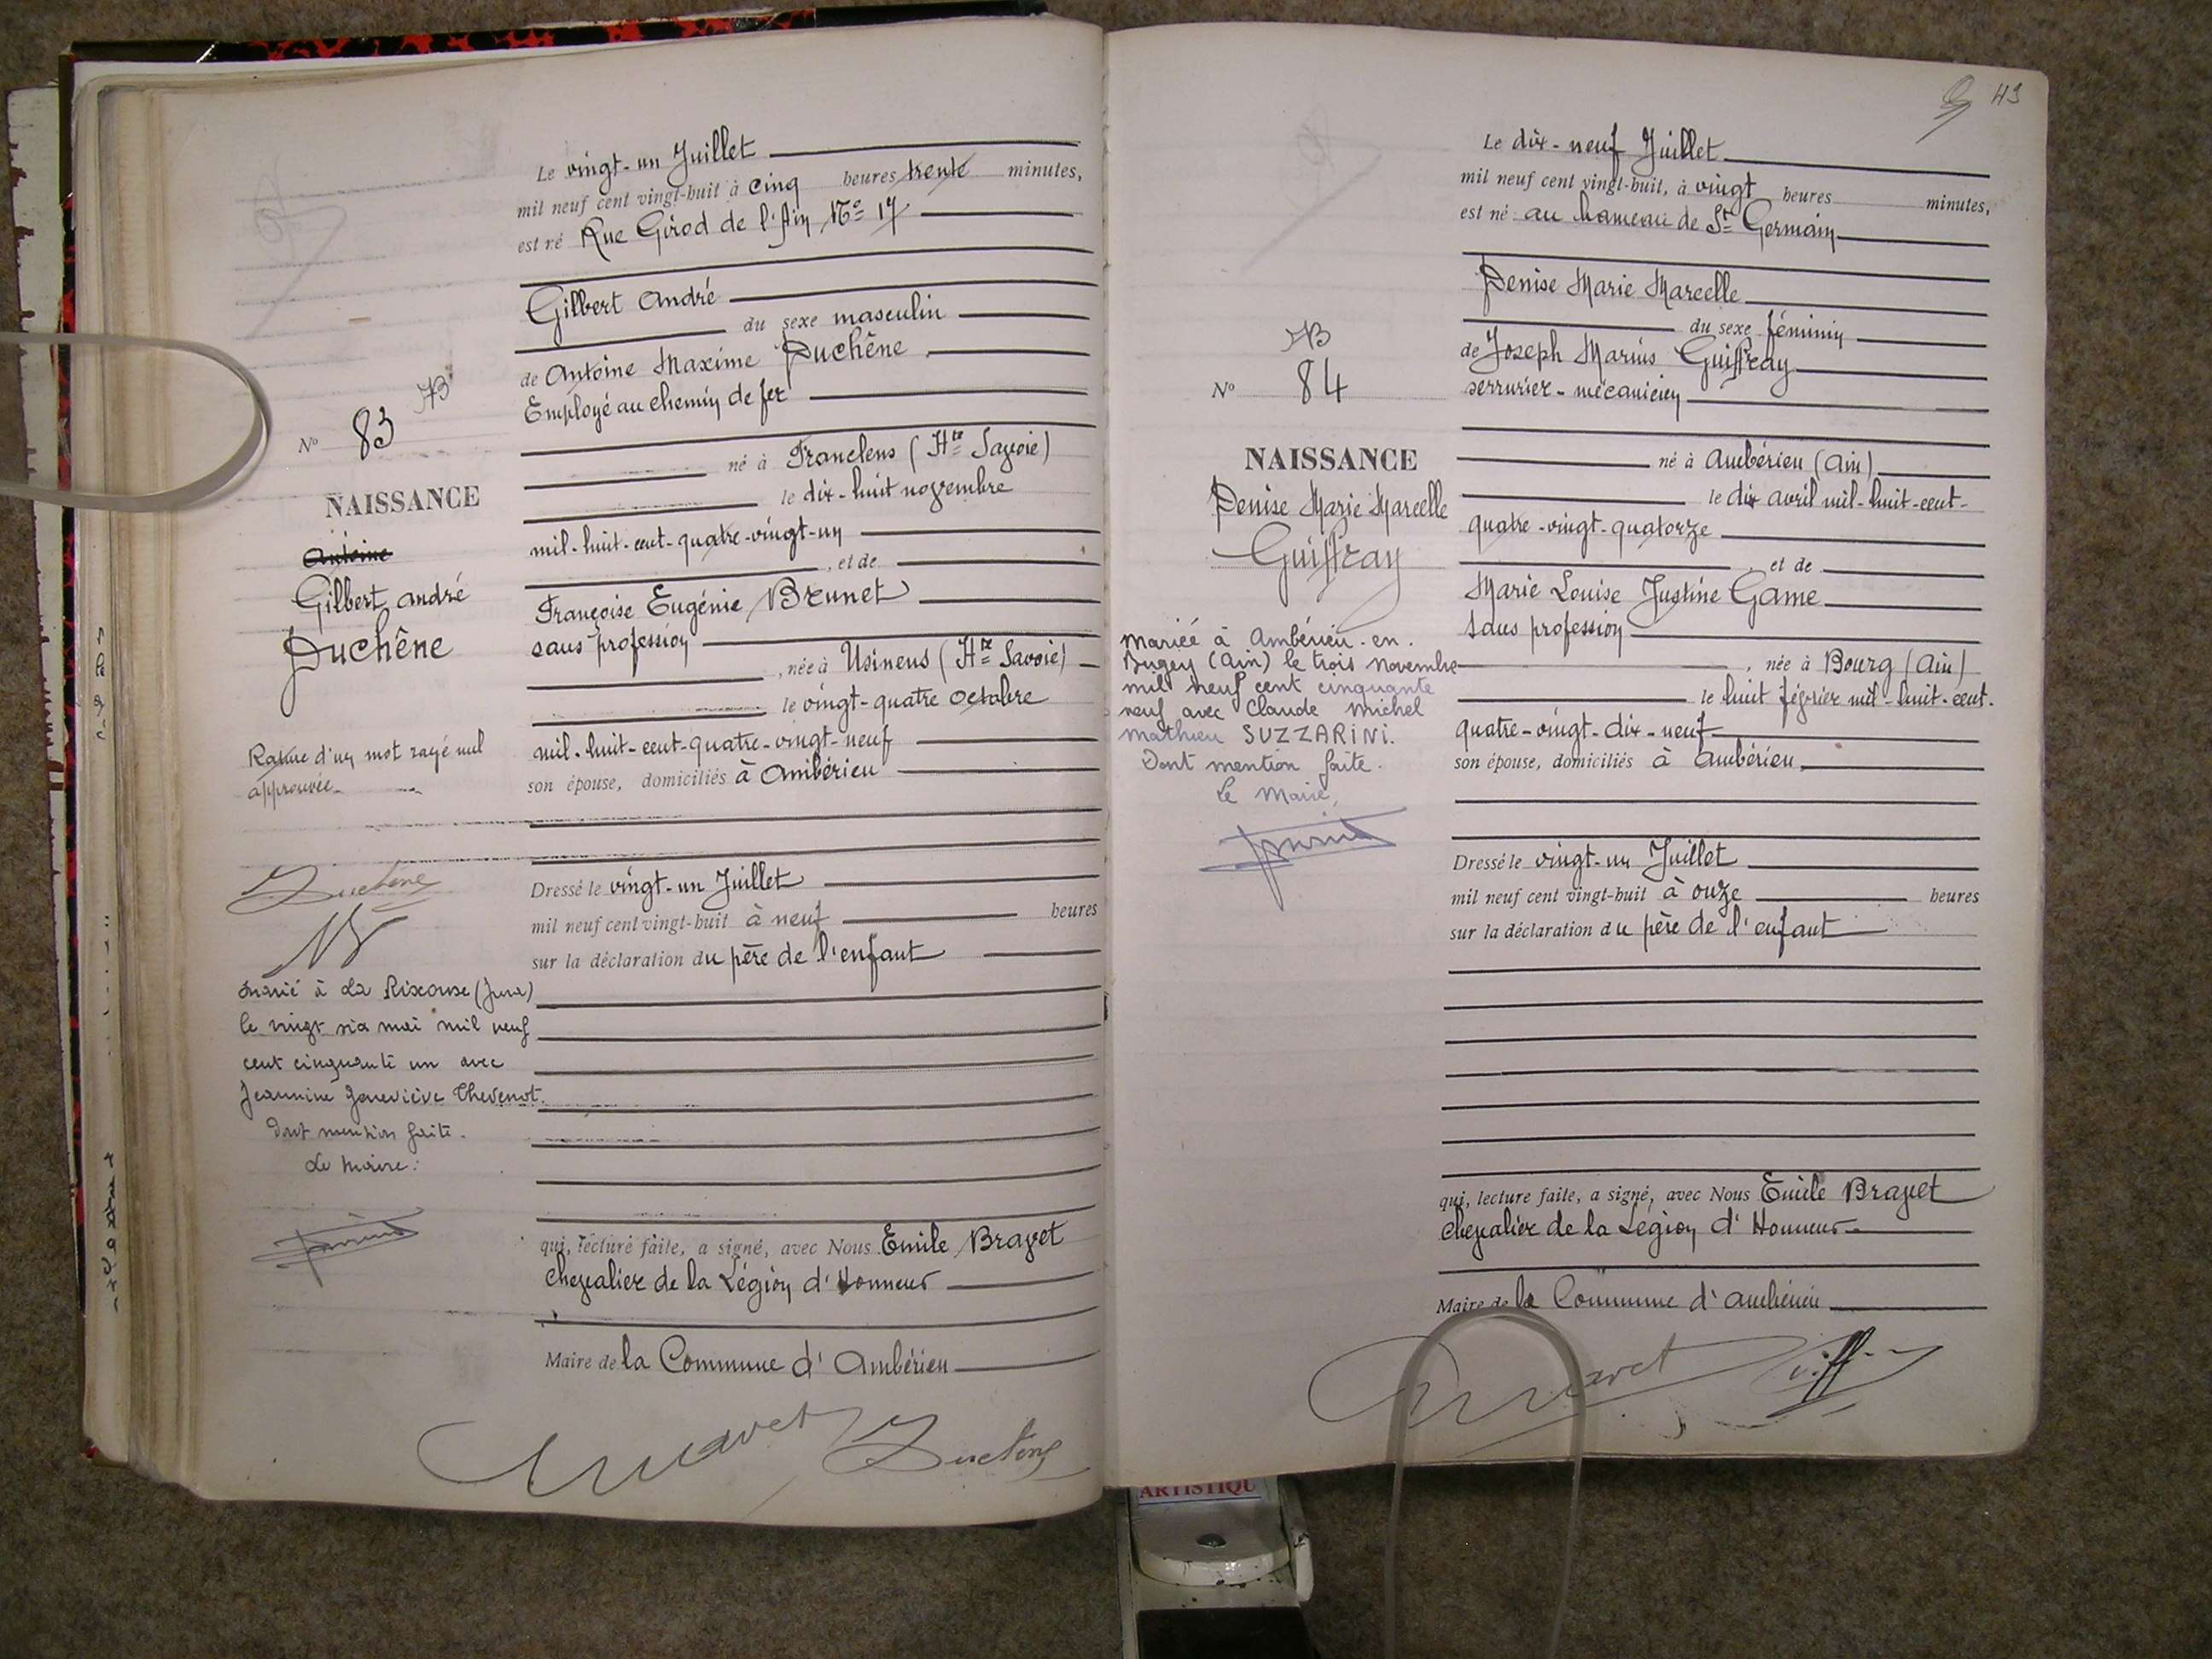 Le vingt-un Juillet
mil neuf cent vingt-huit à cinq heures trente minutes,
est né Rue Girod de l'Ain N° 17
Gilbert André
du sexe masculin
de Antoine Maxime Duchêne
Employé au chemin de fer
né à Franclens (Hte Savoie)
le dix-huit novembre
mil-huit-cent-quatre-vingt-un
, et de
Françoise Eugénie Brunet
sans profession
, née à Usinens (Hte Savoie)
le vingt-quatre octobre
mil-huit-cent-quatre-vingt-neuf
son épouse, domiciliés à Ambérieu
Dressé le vingt-un Juillet
mil neuf cent vingt-huit à neuf heures
sur la déclaration du père de l'enfant
qui, lecture faite, a signé, avec Nous Emile Bravet
Chevalier de la Légion d'Honneur
Maire de la Commune d'Ambérieu
Bravet Duchêne
N° 83
NAISSANCE
Antoine
Gilbert André
Duchêne
Rature d'un mot rayé nul
approuvée
Duchêne
Marié à La Rixouse (Jura)
le vingt six mai mil neuf
cent cinquante un avec
Jeannine Geneviève Thevenot.
Dont mention faite.
Le Maire:
43
Le dix-neuf Juillet
mil neuf cent vingt-huit, à vingt heures minutes,
est né au hameau de St Germain
Denise Marie Marcelle
du sexe féminin
de Joseph Marius Guiffray
serrurier-mécanicien
né à Ambérieu (Ain)
le dix avril mil-huit-cent-
quatre-vingt-quatorze
et de
Marie Louise Justine Game
sans profession
, née à Bourg (Ain)
le huit février mil-huit-cent-
quatre-vingt-dix-neuf
son épouse, domiciliés à Ambérieu
Dressé le vingt-un Juillet
mil neuf cent vingt-huit à onze heures
sur la déclaration du père de l'enfant
qui, lecture faite, a signé, avec Nous Emile Bravet
Chevalier de la Légion d'Honneur
Maire de la Commune d'Ambérieu
Bravet
N° 84
NAISSANCE
Denise Marie Marcelle
Guiffray
Mariée à Ambérieu-en-
Bugey (Ain) le trois novembre
mil neuf cent cinquante
neuf avec Claude Michel
Mathieu SUZZARINI.
Dont mention faite.
Le Maire,
ARTISTIQU